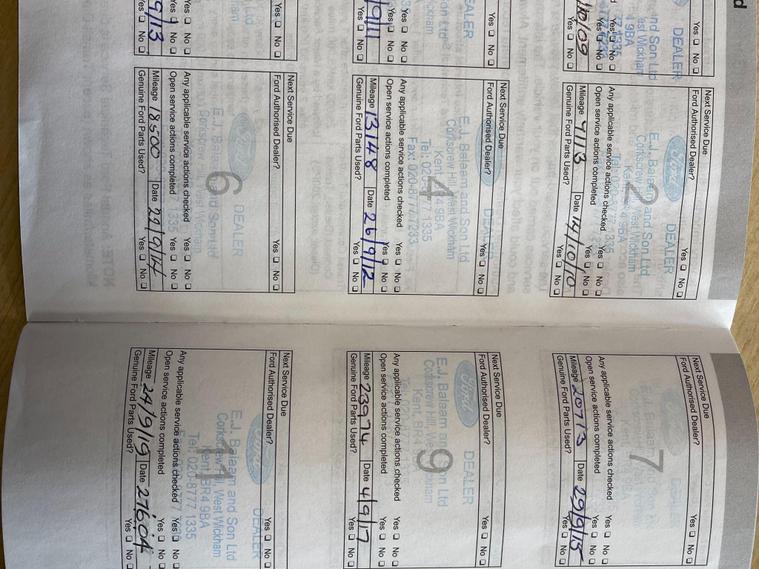 Yes ☐ No ☐
2
DEALER
Ford
E.J. Balaam and Son Ltd
West Wickham
Next Service Due
Ford Authorised Dealer? Yes ☐ No ☐
Any applicable service actions checked Yes ☐ No ☐
Open service actions completed Yes ☐ No ☐
Mileage 9113 Date 14/10/10
Genuine Ford Parts Used? Yes ☐ No ☐
4
DEALER
E.J. Balaam and Son Ltd
Corkscrew Hill, West Wickham
Kent, BR4 9BA
Tel: 020-8777 1335
Fax: 020-8777 7293
Next Service Due
Ford Authorised Dealer? Yes ☐ No ☐
Any applicable service actions checked Yes ☐ No ☐
Open service actions completed Yes ☐ No ☐
Mileage 13148 Date 26/9/12
Genuine Ford Parts Used? Yes ☐ No ☐
6
DEALER
Next Service Due
Ford Authorised Dealer? Yes ☐ No ☐
Any applicable service actions checked Yes ☐ No ☐
Open service actions completed Yes ☐ No ☐
Mileage 18500 Date 29/9/14
Genuine Ford Parts Used? Yes ☐ No ☐
7
Next Service Due
Ford Authorised Dealer? Yes ☐ No ☐
Any applicable service actions checked Yes ☐ No ☐
Open service actions completed Yes ☐ No ☐
Mileage 20713 Date 29/9/15
Genuine Ford Parts Used? Yes ☐ No ☐
9
Ford
DEALER
E.J. Balaam and Son Ltd
Corkscrew Hill, West Wickham
Kent, BR4
Next Service Due
Ford Authorised Dealer? Yes ☐ No ☐
Any applicable service actions checked Yes ☐ No ☐
Open service actions completed Yes ☐ No ☐
Mileage 23974 Date 4/9/17
Genuine Ford Parts Used? Yes ☐ No ☐
11
Ford
DEALER
E.J. Balaam and Son Ltd
Corkscrew Hill, West Wickham
Kent, BR4 9BA
Tel: 020-8777 1335
Next Service Due
Ford Authorised Dealer? Yes ☐ No ☐
Any applicable service actions checked Yes ☐ No ☐
Open service actions completed Yes ☐ No ☐
Mileage 24/9/19 Date 27604
Genuine Ford Parts Used? Yes ☐ No ☐